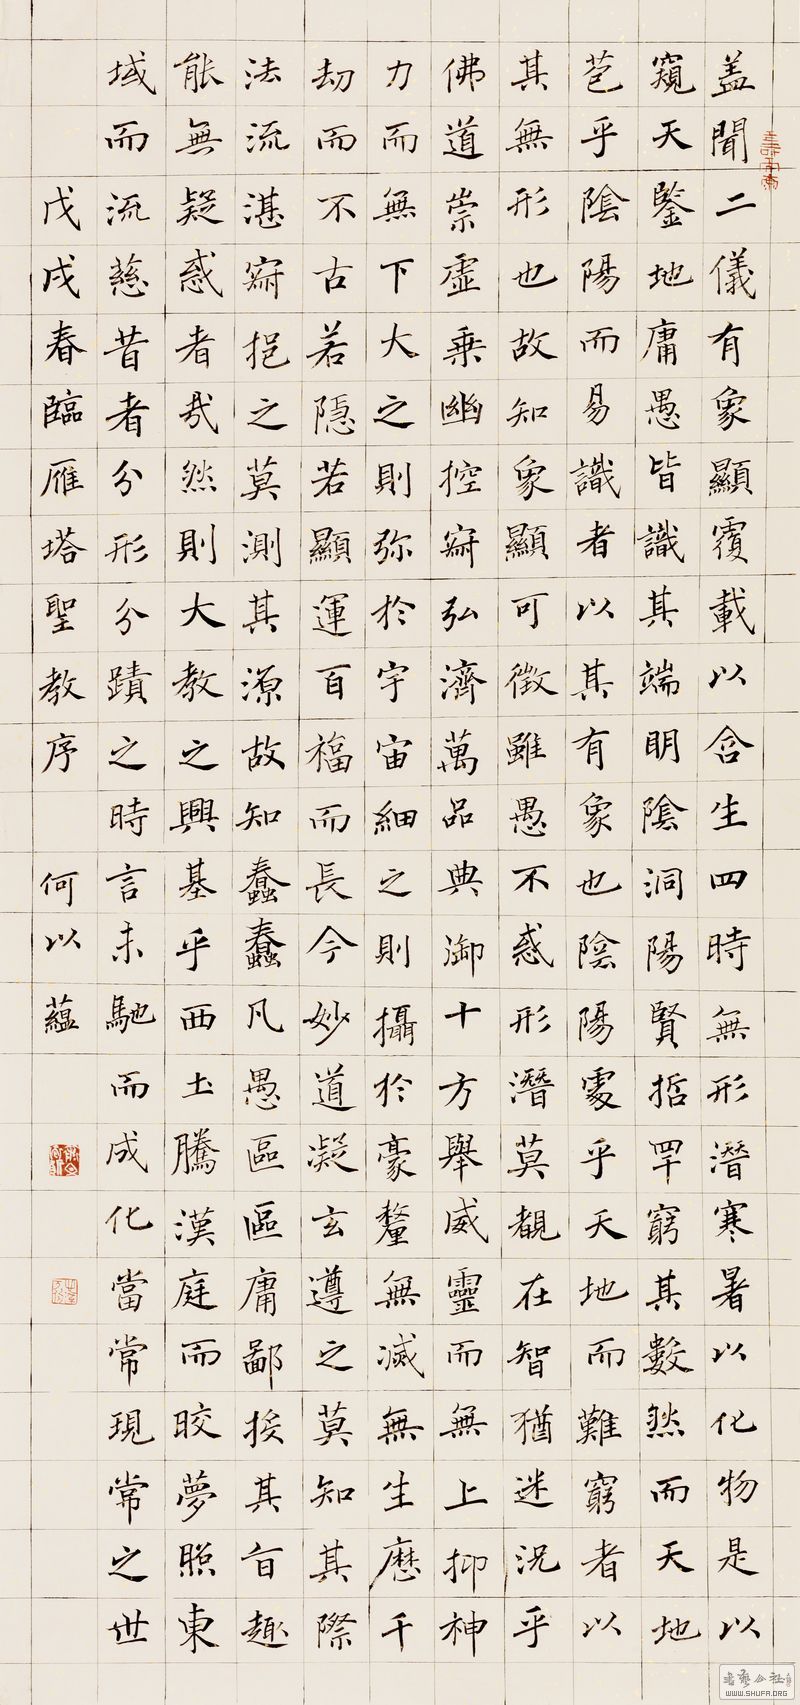 蓋聞二儀有象顯覆載以含生四時無形潛寒暑以化物是以
窺天鑒地庸愚皆識其端明陰洞陽賢哲罕窮其數然而天地
苞乎陰陽而易識者以其有象也陰陽處乎天地而難窮者以
其無形也故知象顯可徵雖愚不惑形潛莫覩在智猶迷況乎
佛道崇虛乗幽控寂弘濟萬品典御十方舉威靈而無上抑神
力而無下大之則弥於宇宙細之則攝於豪釐無滅無生歷千
劫而不古若隱若顯運百福而長今妙道凝玄遵之莫知其際
法流湛寂挹之莫測其源故知蠢蠢凡愚區區庸鄙投其旨趣
能無疑惑者哉然則大教之興基乎西土騰漢庭而皎夢照東
域而流慈昔者分形分蹟之時言未馳而成化當常現常之世
戊戌春臨雁塔聖教序 何以蘊
書藝公社
WWW.SHUFA.ORG